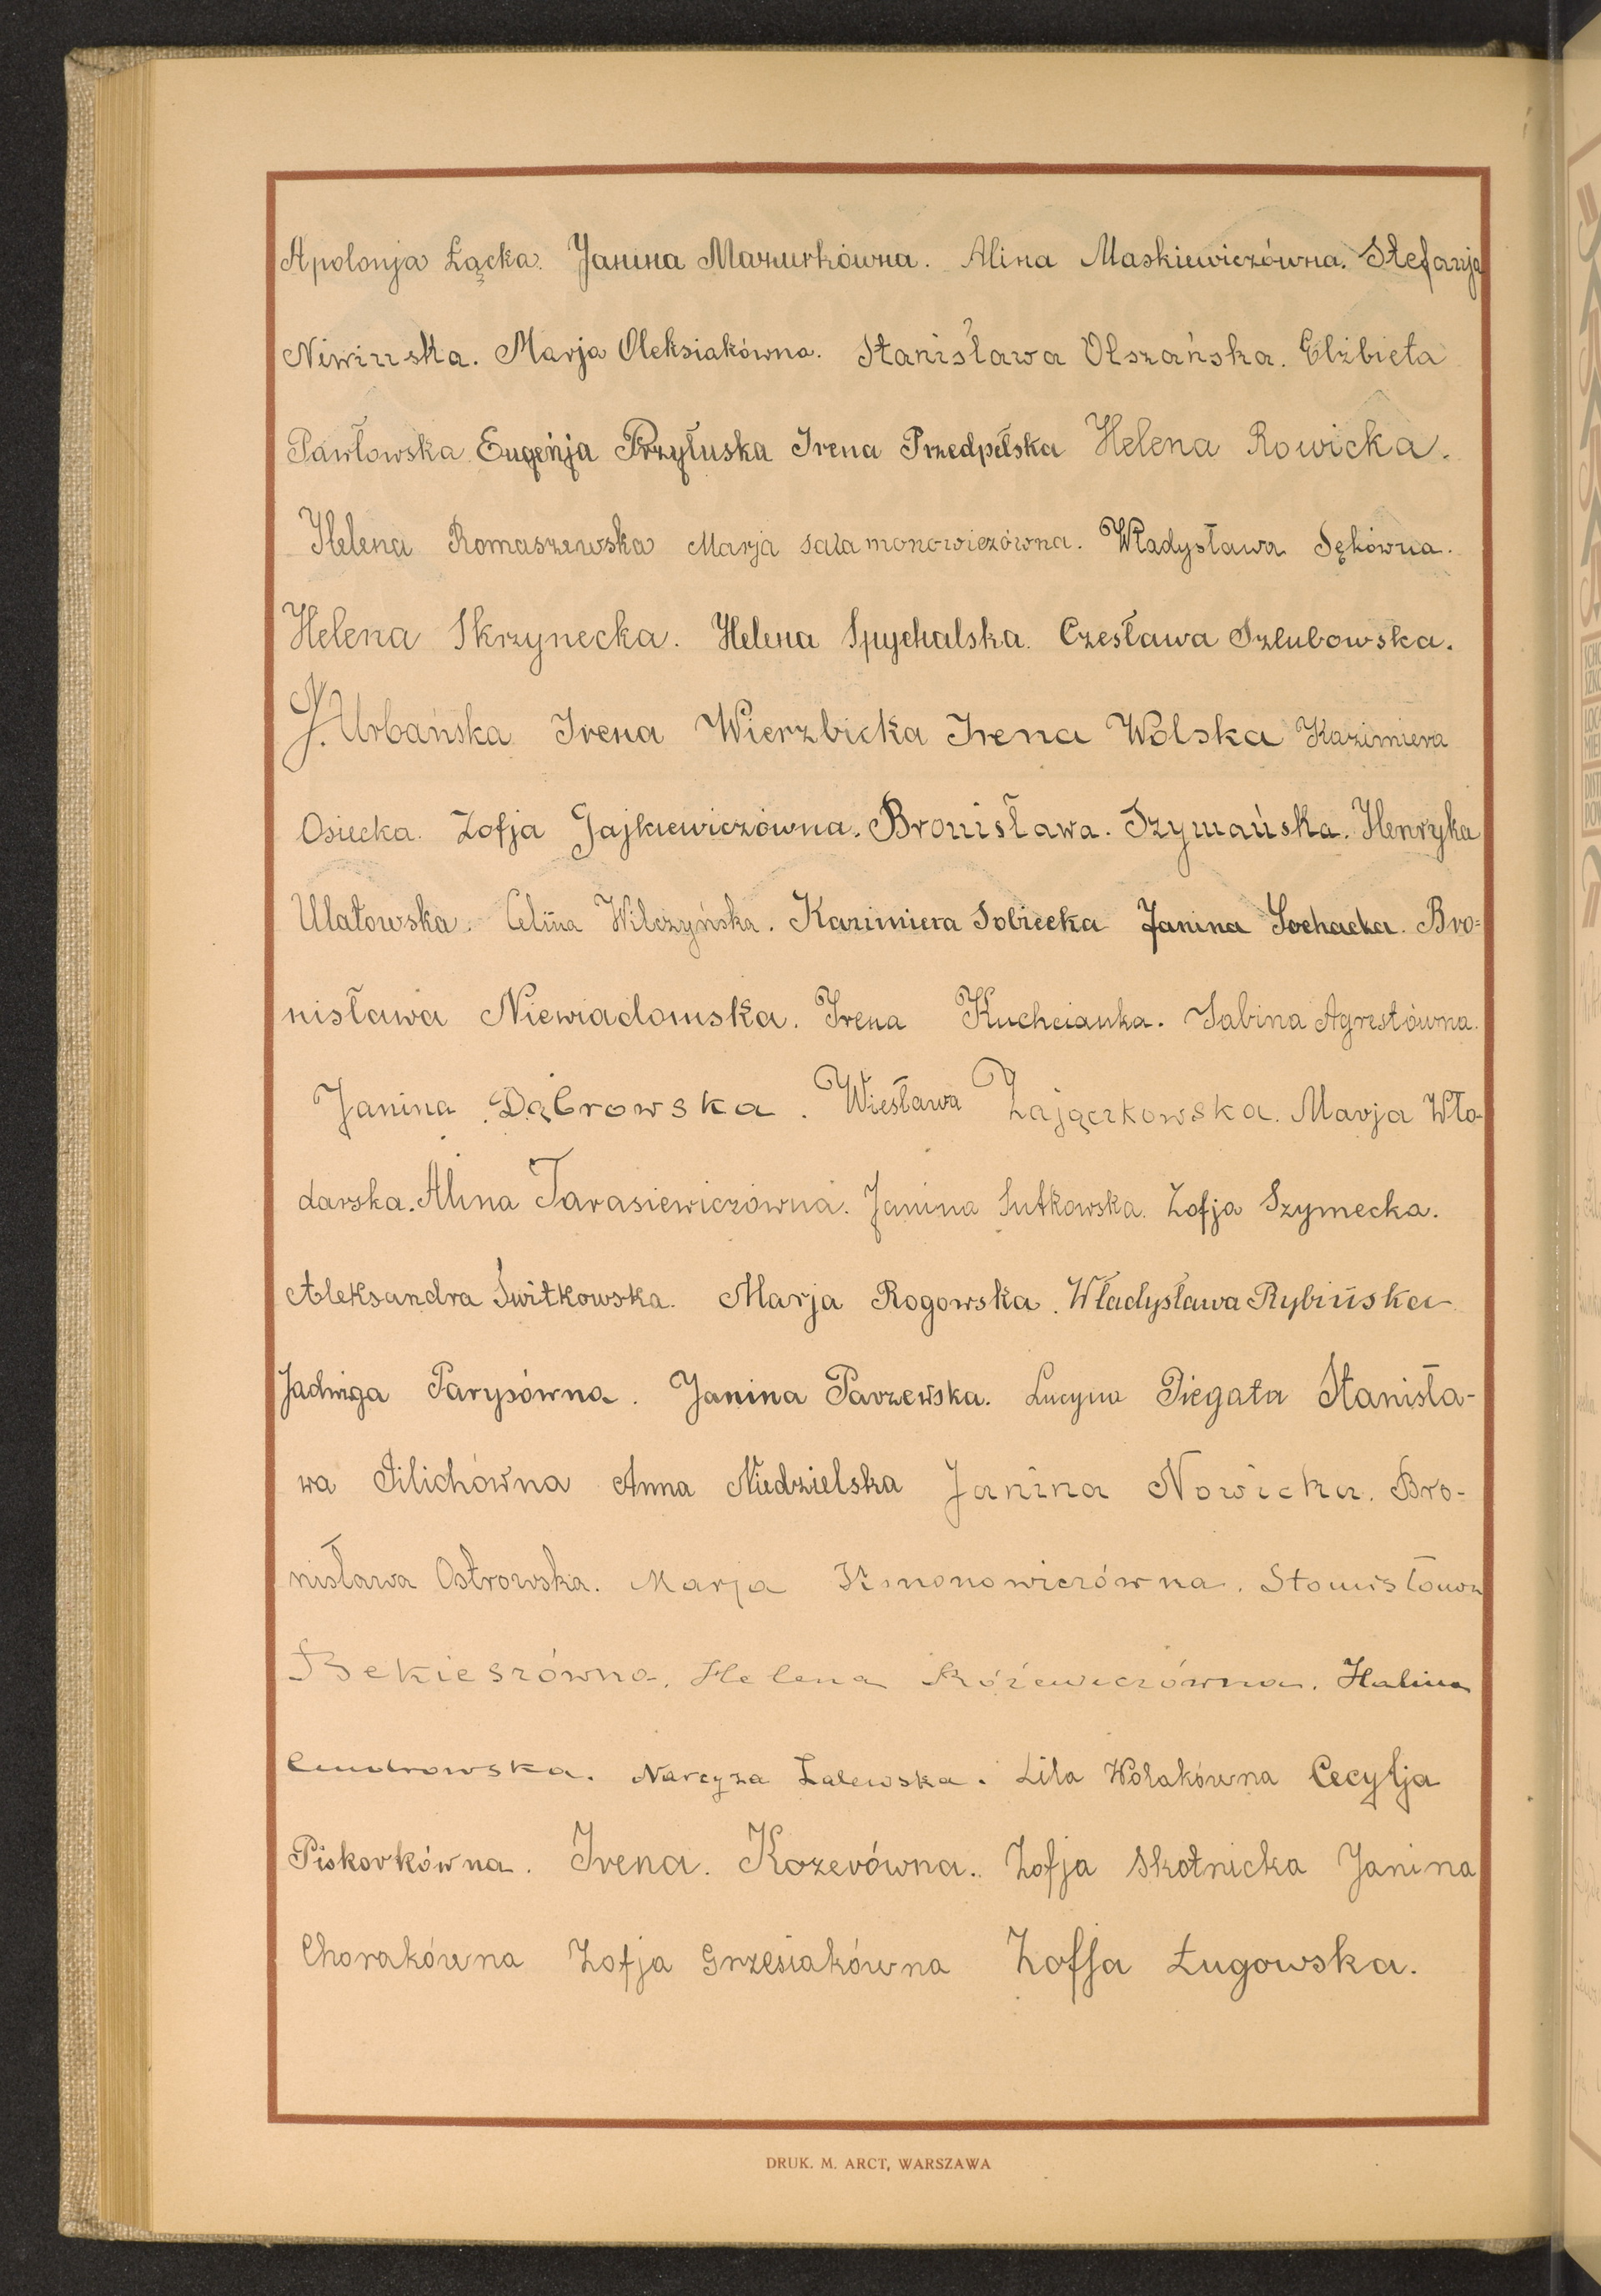 Apolonja Łącka. Janina Mazurkówna. Alina Maskiewiczówna. Stefanja
Niwińska. Marja Oleksiakówna. Stanisława Olszańska. Elżbieta
Pawłowska Eugenja Przyłuska Irena Przedpełska Helena Rowicka.
Helena Romaszewska Marja Salamonowiczówna. Władysława Sękówna.
Helena Skrzynecka. Helena Spychalska. Czesława Szlubowska.
J. Urbańska Irena Wierzbicka Irena Wolska Kazimiera
Osiecka. Zofja Gajkiewiczówna. Bronisława. Szymańska. Henryka
Ulatowska. Celina Wilczyńska. Kazimiera Sobiecka Janina Sochacka. Bro=
nisława Niewiadomska. Irena Kuchcianka. Sabina Agrestówna.
Janina Dąbrowska. Wiesława Zajączkowska. Marja Wło-
darska. Alina Tarasiewiczówna. Janina Sutkowska. Zofja Szymecka.
Aleksandra Świtkowska. Marja Rogowska. Władysława Rybińska
Jadwiga Parysówna. Janina Parzewska. Lucyna Piegata Stanisła-
wa Pilichówna Anna Niedzielska Janina Nowicka. Bro-
nisława Ostrowska. Marja Kononowiczówna. Stanisława
Bekieszówna. Helena Różewiczówna. Halina
Narcyza Zalewska. Lila Wolakówna Cecylja
Piskorkówna. Irena. Kozerówna. Zofja Skotnicka Janina
Chorakówna Zofja Grzesiakówna Zofja Ługowska.
DRUK. M. ARCT, WARSZAWA